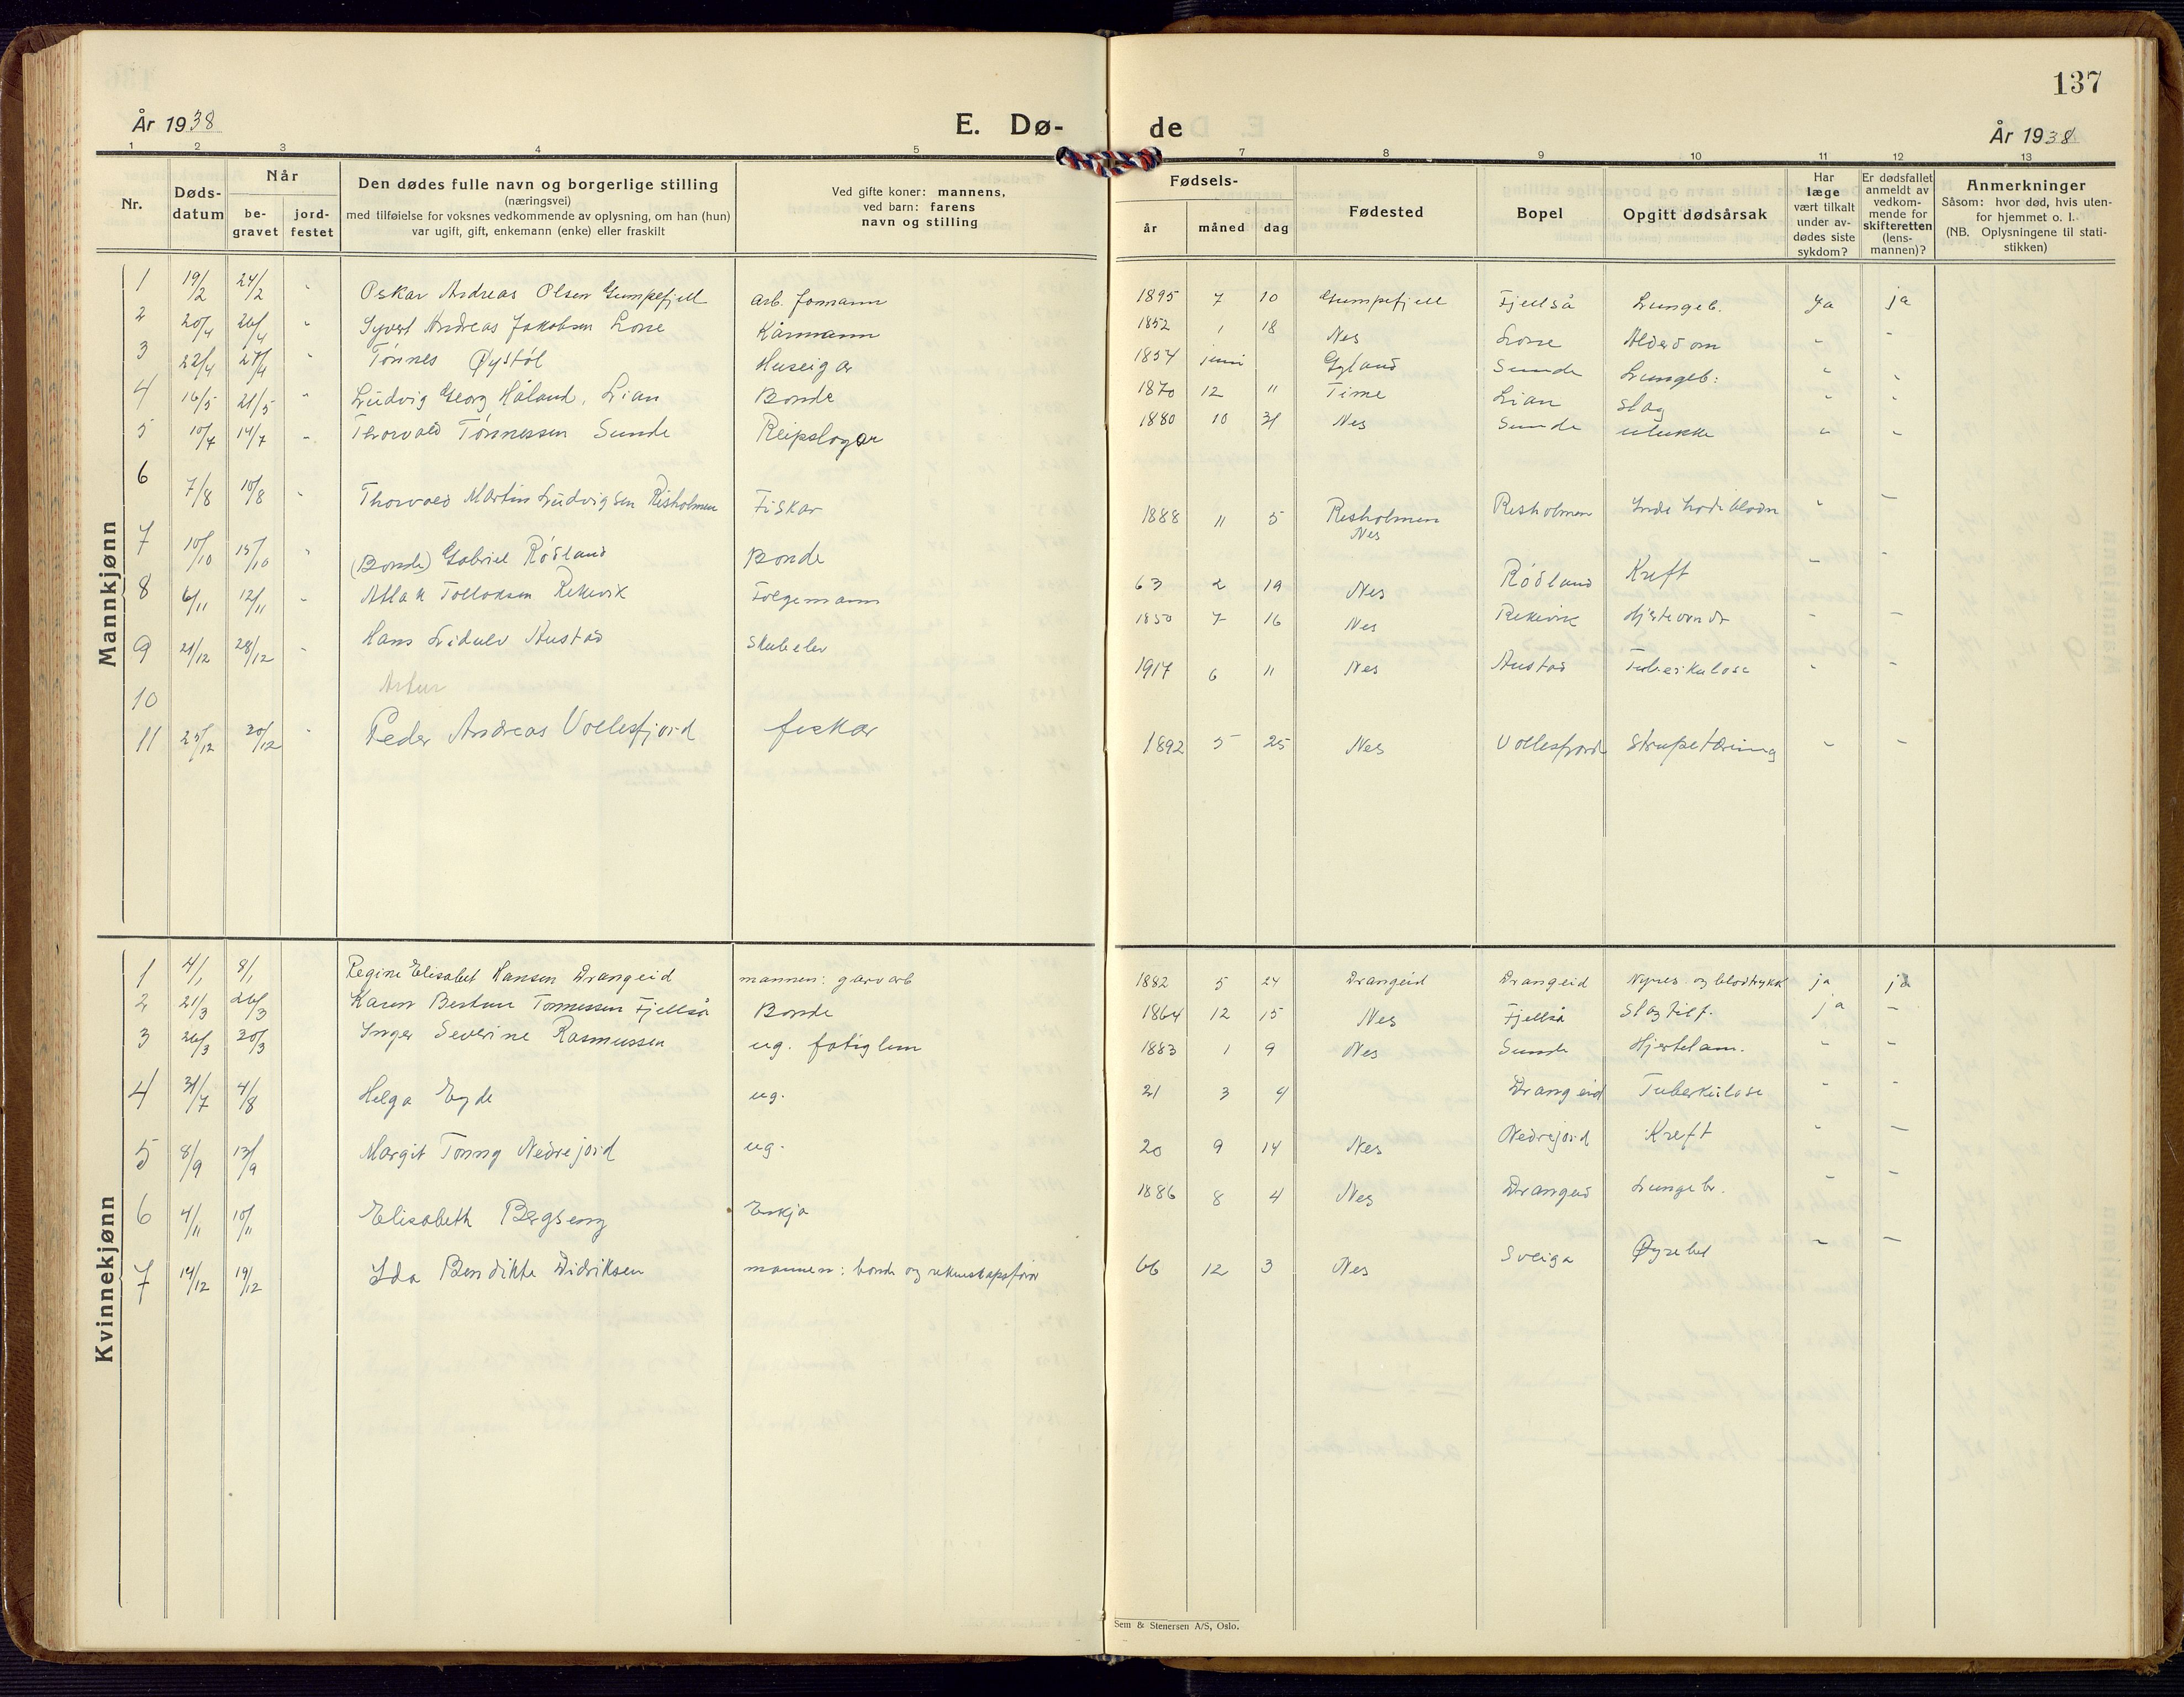 137
År 1938
E. Dø-
de
År 1938
1 2 3 4 5 7 8 9 10 11 12 13
Nr.
Døds-
datum
Når
be-
gravet
jord-
festet
Den dødes fulle navn og borgerlige stilling
(næringsvei)
med tilføielse for voksnes vedkommende av oplysning, om han (hun)
var ugift, gift, enkemann (enke) eller fraskilt
Ved gifte koner: mannens,
ved barn: farens
navn og stilling
Fødsels-
år måned dag
Fødested
Bopel
Opgitt dødsårsak
Har
læge
vært tilkalt
under av-
dødes siste
sykdom?
Er dødsfallet
anmeldt av
vedkom-
mende for
skifteretten
(lens-
mannen)?
Anmerkninger
Såsom: hvor død, hvis uten-
for hjemmet o. l.
(NB. Oplysningene til stati-
stikken)
Mannkjønn
1 19/2 24/2 " Oskar Andreas Olsen Gumpefjell arb. formann 1895 7 10 Gumpefjell Fjellså Lungeb. Ja ja
2 20/4 26/4 " Syvert Andreas Jakobsen Losse Kårmann 1852 1 18 Nes Losse Alderdom " "
3 22/4 27/4 " Tønnes Øystøl Huseigar 1854 juni Gyland Sunde Lungeb: " "
4 16/5 21/5 " Ludvig Georg Håland, Lian Bonde 1870 12 11 Time Lian Slag " "
5 10/7 14/7 " Thorvald Tønnessen Sunde Reipslagar 1880 10 31 Nes Sunde ulukke " "
6 7/8 10/8 " Thorvald Martin Ludvigsen Risholmen Fiskar 1888 11 5 Risholmen Nes Risholmen " "
7 10/10 15/10 " (Bonde) Gabriel Rødland Bonde 63 2 19 Nes Rødland Kreft " "
8 6/11 12/11 " Atlak Tollaksen Rekevik Følgemann 1850 7 16 Nes Rekevik " "
9 21/12 28/12 " Hans Lidulv Austad Skuleelev 1917 6 11 Nes Austad Tuberkulose " "
Artur
10
11 25/12 30/12 " Peder Andreas Vollesfjord fiskar 1892 5 25 Nes Vollesfjord Strupetæring " "
Kvinnekjønn
1 4/1 8/1 Regine Elisabet Hansen Drangeid mannen: garvarb 1882 5 24 Drangeid Drangeid Nyres. og blodtrykk ja ja
2 21/3 26/3 Karen Tønnessen Fjellså Bonde 1864 12 15 Nes Fjellså Slagtilf. ja "
3 26/3 30/3 Inger Severine Rasmussen ug. fatiglem 1883 1 9 Nes Sunde Hjertelam. " "
4 31/7 4/8 Helga Eyde ug. 21 3 4 Drangeid Tuberkulose " "
5 8/9 13/9 Margit Tonny Nedrejord ug. 20 9 14 Nes Nedrejord Kreft " "
6 4/11 10/11 Elisabeth Bergseng Enkja 1886 8 4 Nes Drangeid Lungebr. " "
7 14/12 19/12 Ida Bendikte Didriksen mannen: bonde og rekneskapsførar 66 12 3 Nes Sveiga " "
Sem & Stenersen A/S, Oslo.